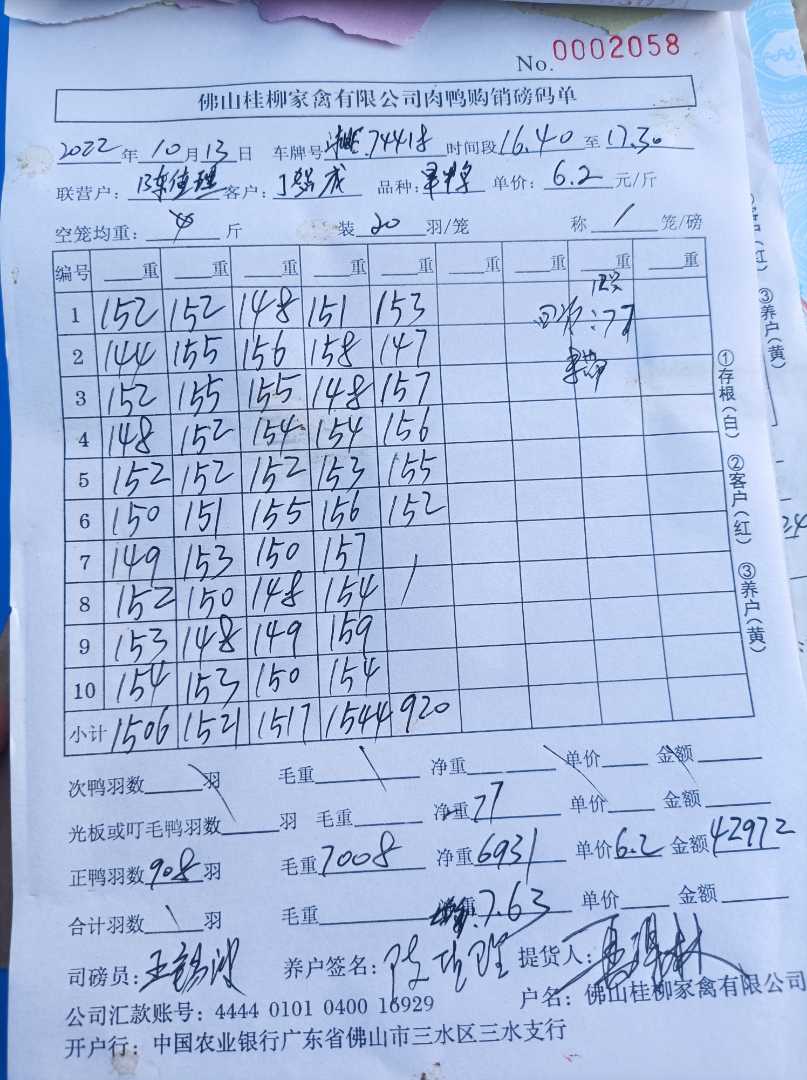 No. 0002058
佛山桂柳家禽有限公司肉鸭购销磅码单
2022 年 10 月 13 日 车牌号 74418 时间段 16.40 至 17.30
联营户: 客户: 品种: 单价: 6.2 元/斤
空笼均重: 斤 装 20 羽/笼 称 1 笼/磅
编号 重 重 重 重 重 重 重 重 重
1 152 152 148 151 153 : 77
2 144 155 156 158 147
3 152 155 155 148 157
4 148 152 154 154 156
5 152 152 152 153 155
6 150 151 155 156 152
7 149 153 150 157
8 152 150 148 154 /
9 153 148 149 159
10 154 153 150 154
小计 1506 1521 1517 1544 920
次鸭羽数 羽 毛重 净重 单价 金额
光板或叮毛鸭羽数 羽 毛重 净重 77 单价 金额
正鸭羽数 908 羽 毛重 7008 净重 6931 单价 6.2 金额 42972
合计羽数 羽 毛重 7.63 单价 金额
司磅员: 养户签名: 提货人:
公司汇款账号: 4444 0101 0400 16929 户名: 佛山桂柳家禽有限公司
开户行: 中国农业银行广东省佛山市三水区三水支行
①存根(白) ②客户(红) ③养户(黄)
③养户(黄)